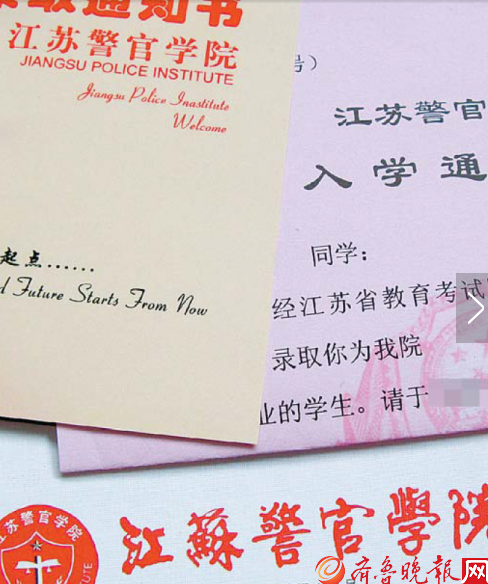 录取通知书
江苏警官学院
JIANGSU POLICE INSTITUTE
Jiangsu Police Inastitute
Welcome
起点......
Future Starts From Now
号）
江苏警官
入学通
同学：
经江苏省教育考试
录取你为我院
业的学生。请于
江苏警官学院
江蘇警官學院
齐鲁晚报网